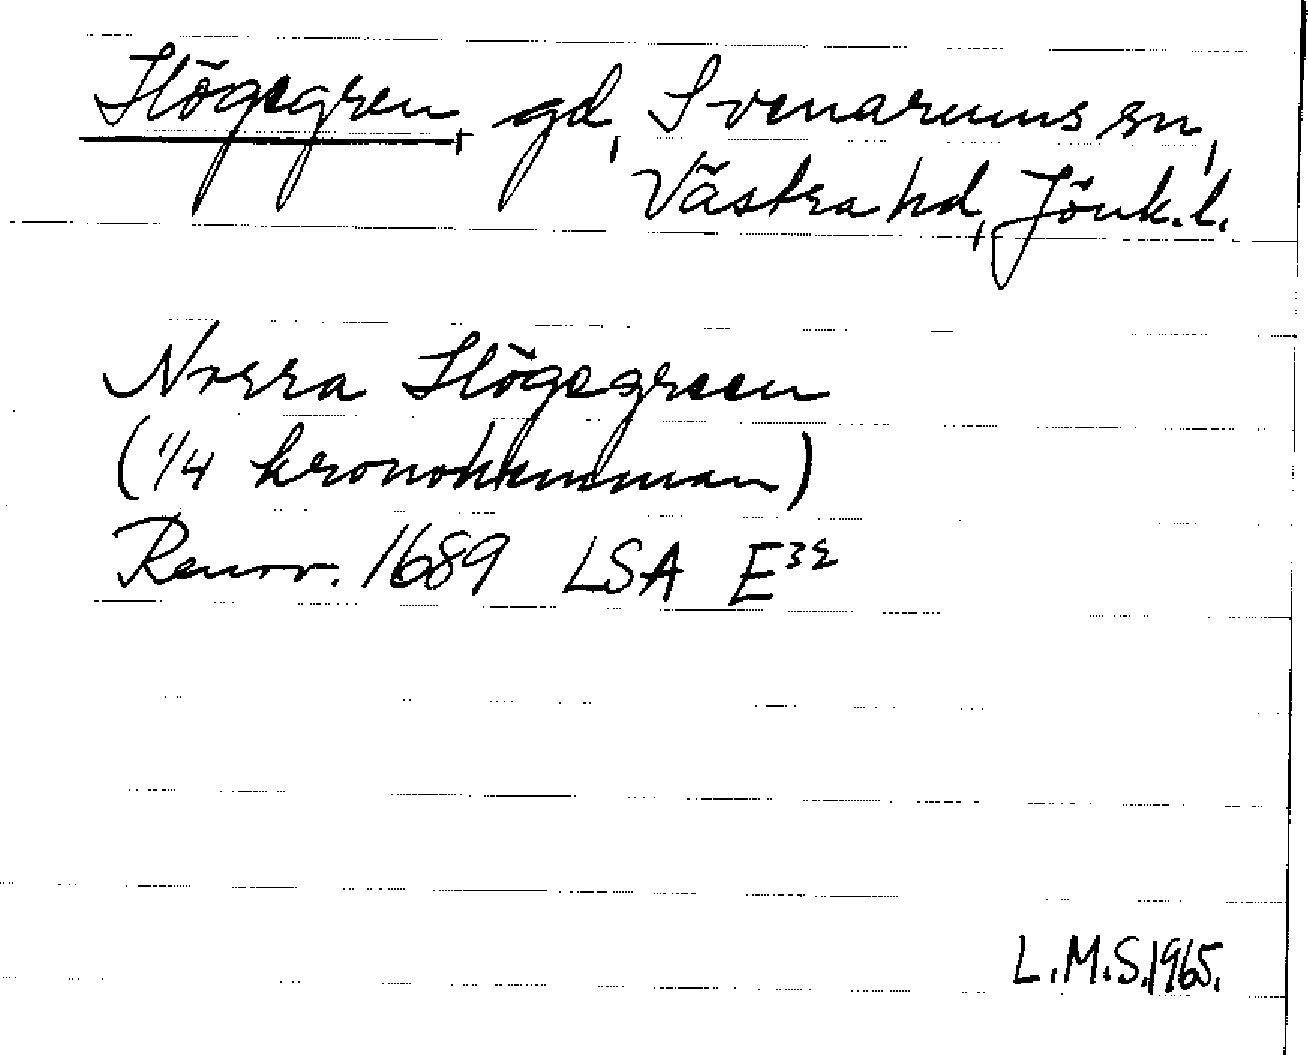 Högsgren, gd, Svenarums sn,
Västra hd, Jönk.l.
Norra Högsgreen
(1/4 kronohemman)
Renov. 1689 LSA E32
L.M.S.1965.